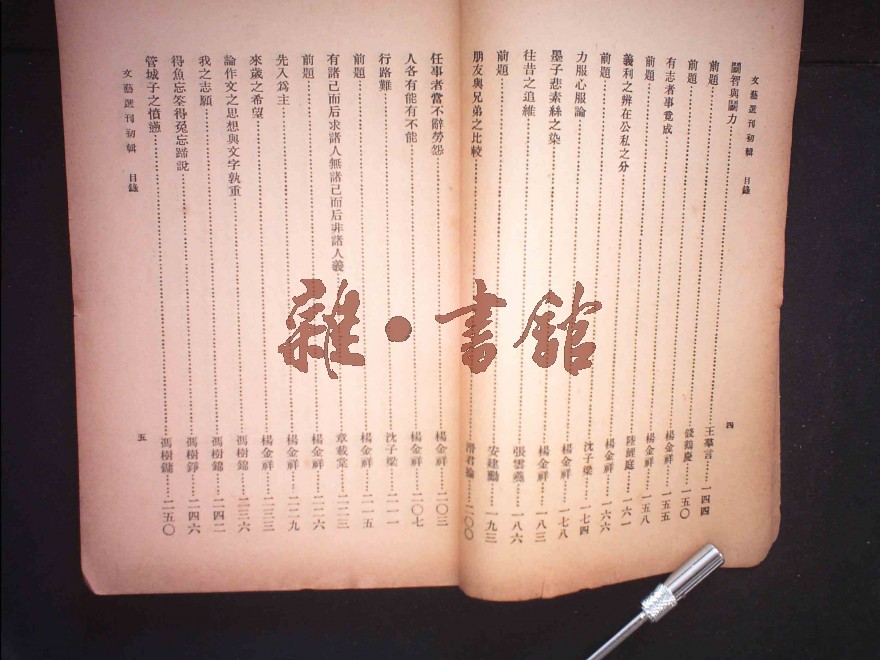 文藝選刊初輯 目錄 四
鬭智與鬭力……王摹言……一四四
前題……鶴慶……一五〇
前題……楊金祥……一五五
有志者事竟成……楊金祥……一五八
前題……陸鯉庭……一六一
義利之辨在公私之分……楊金祥……一六六
前題……沈子梁……一七四
力服心服論……楊金祥……一七八
墨子悲素絲之染……楊金祥……一八三
往昔之追維……張雲……一八六
前題……安建勳……一九三
朋友與兄弟之比較……君……二〇〇
任事者當不辭勞怨……楊金祥……二〇三
人各有能有不能……楊金祥……二〇七
行路難……沈子梁……二一一
前題……楊金祥……二一五
有諸己而后求諸人無諸己而后非諸人義……章載棠……二二三
前題……楊金祥……二二六
先入爲主……楊金祥……二二九
來歲之希望……楊金祥……二三三
論作文之思想與文字孰重……馮樹錦……二三六
我之志願……馮樹錦……二四二
得魚忘筌得兔忘蹄說……馮樹錚……二四六
管城子之憤懣……馮樹鏞……二五〇
文藝選刊初輯 目錄 五
雜·書館